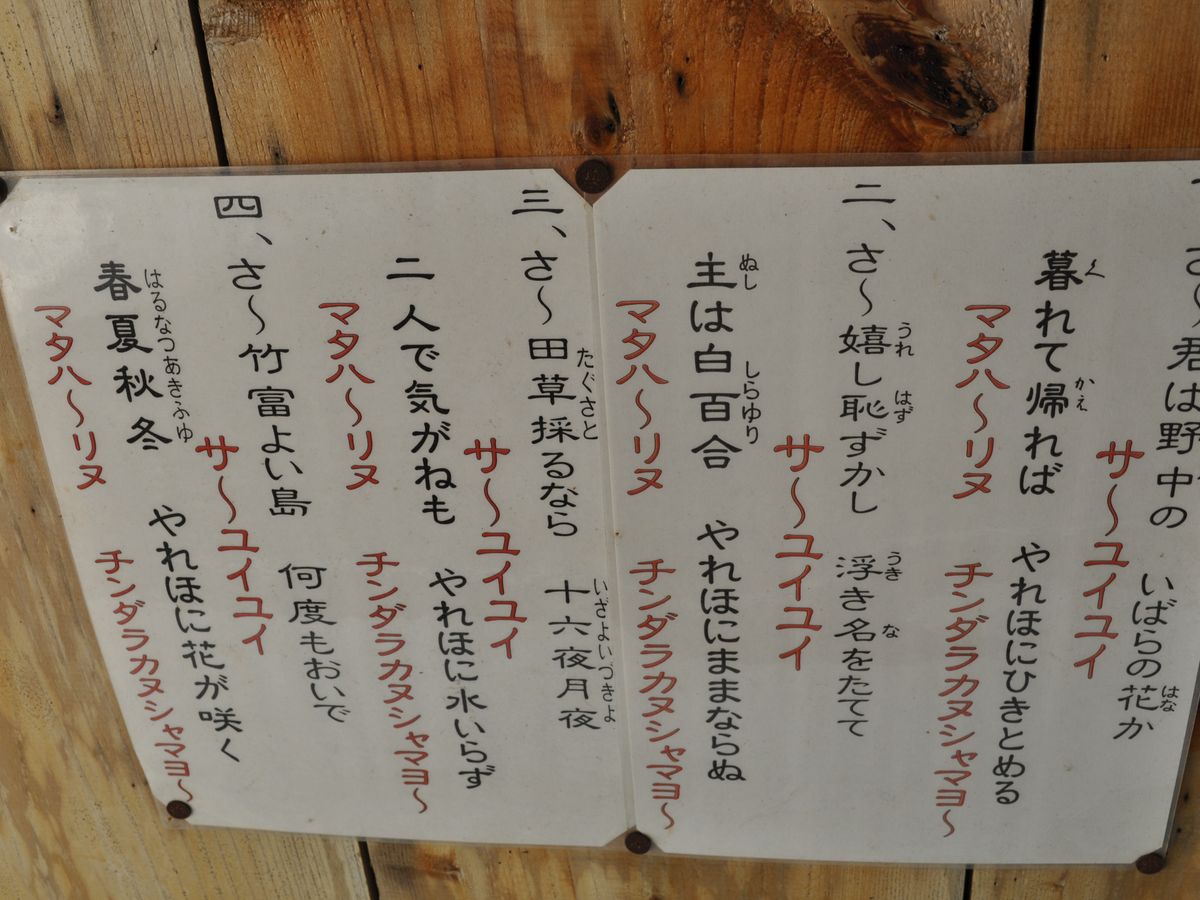 さ〜君は野中の　いばらの花か
サ〜ユイユイ
暮れて帰れば　やれほにひきとめる
マタハ〜リヌ　チンダラカヌシャマヨ〜
二、さ〜嬉し恥ずかし　浮き名をたてて
サ〜ユイユイ
主は白百合　やれほにままならぬ
マタハ〜リヌ　チンダラカヌシャマヨ〜
三、さ〜田草採るなら　十六夜月夜
サ〜ユイユイ
二人で気がねも　やれほに水いらず
マタハ〜リヌ　チンダラカヌシャマヨ〜
四、さ〜竹富よい島　何度もおいで
サ〜ユイユイ
春夏秋冬　やれほに花が咲く
マタハ〜リヌ　チンダラカヌシャマヨ〜